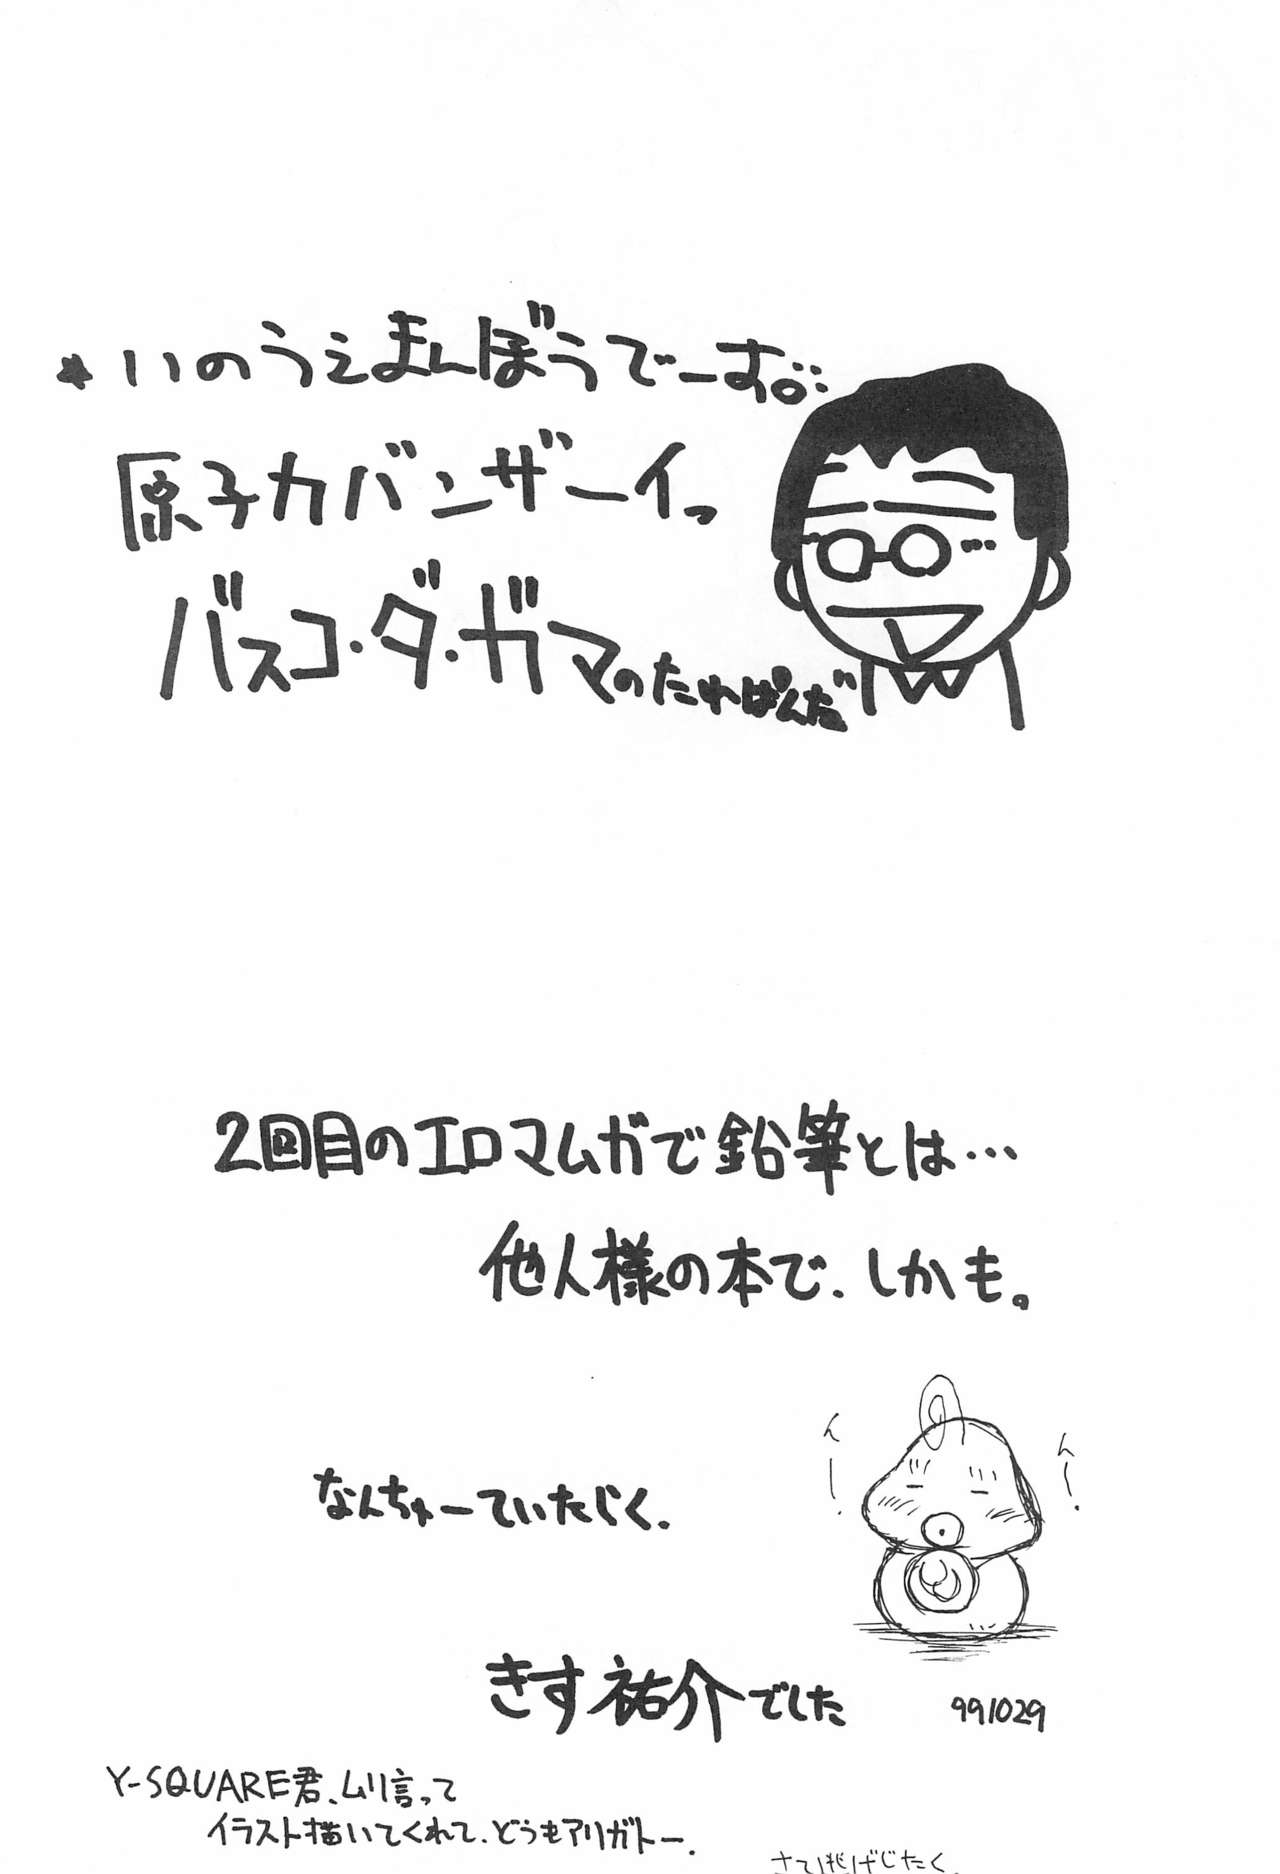 ★いのうえまんぼうでーす。
原子力バンザーイっ
バスコ・ダ・ガマのたれぱんだ
2回目のエロマムガで鉛筆とは…
他人様の本で、しかも。
んー!
んー!
なんちゃーていたじく.
きす祐介でした
991029
Y-SQUARE君、ムリ言って
イラスト描いてくれて、どうもアリガトー.